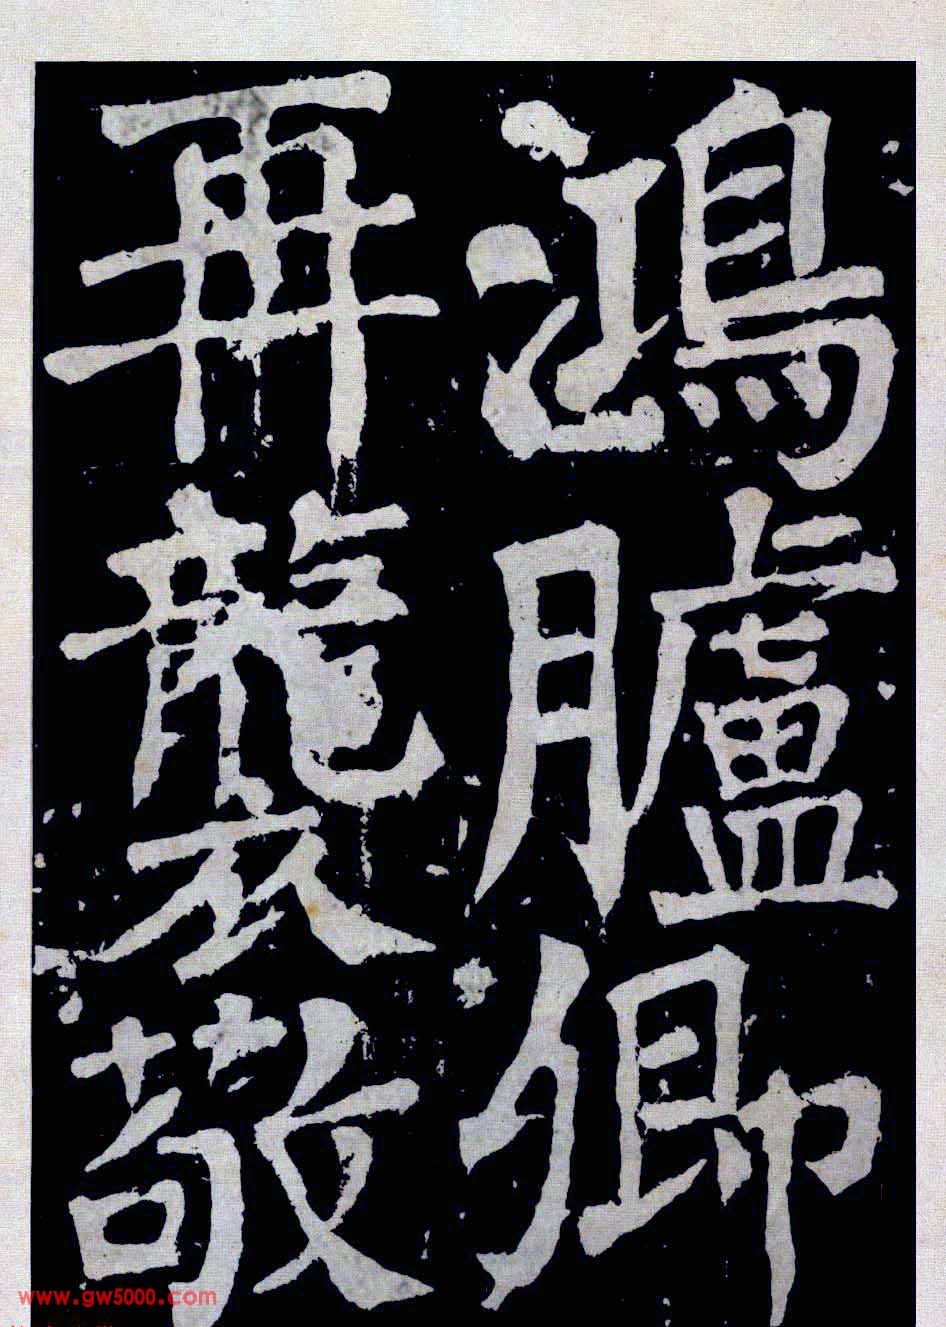 鴻臚卿
再襲敬
www.gw5000.com